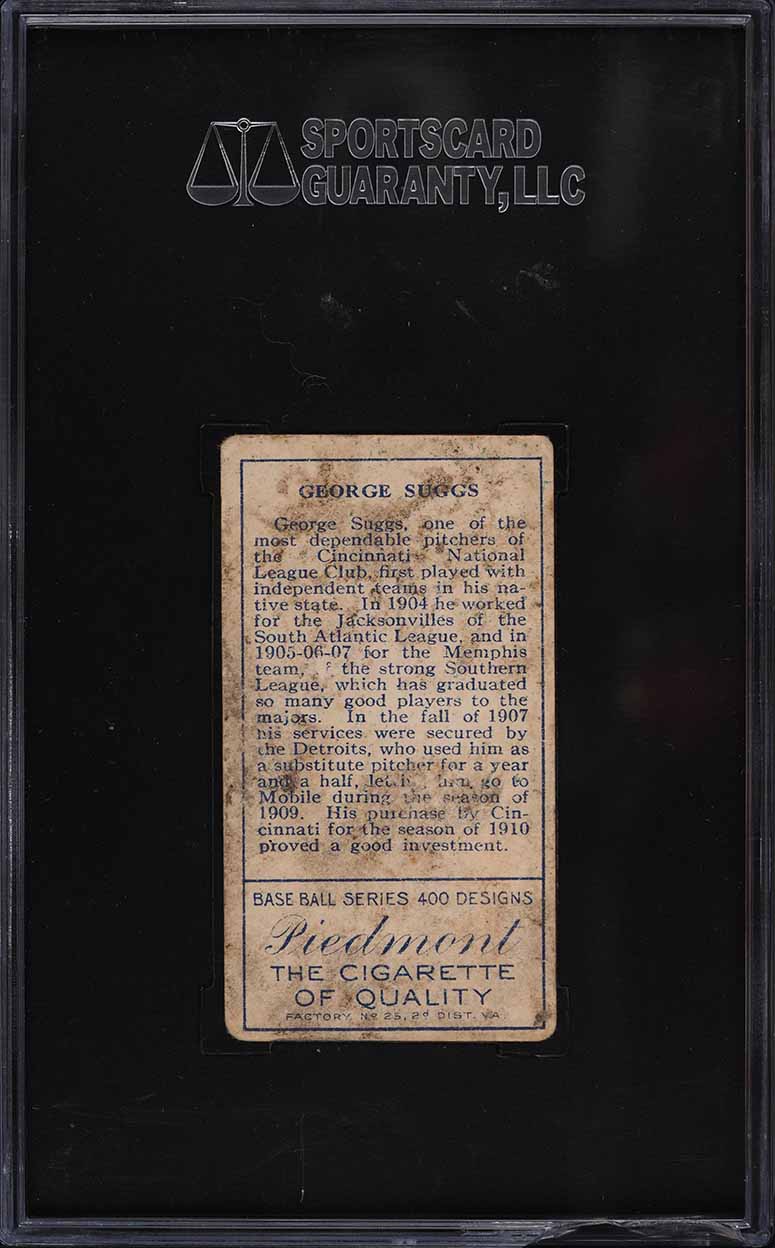 SPORTSCARD
GUARANTY, LLC
GEORGE SUGGS
George Suggs, one of the
most dependable pitchers of
the Cincinnati National
League Club, first played with
independent teams in his na-
tive state. In 1904 he worked
for the Jacksonvilles of the
South Atlantic League, and in
1905-06-07 for the Memphis
team, the strong Southern
League, which has graduated
so many good players to the
majors. In the fall of 1907
his services were secured by
the Detroits, who used him as
a substitute pitcher for a year
and a half, go to
Mobile during the season of
1909. His purchase by Cin-
cinnati for the season of 1910
proved a good investment.
BASE BALL SERIES 400 DESIGNS
Piedmont
THE CIGARETTE
OF QUALITY
FACTORY Nº 25, 2d DIST. VA.